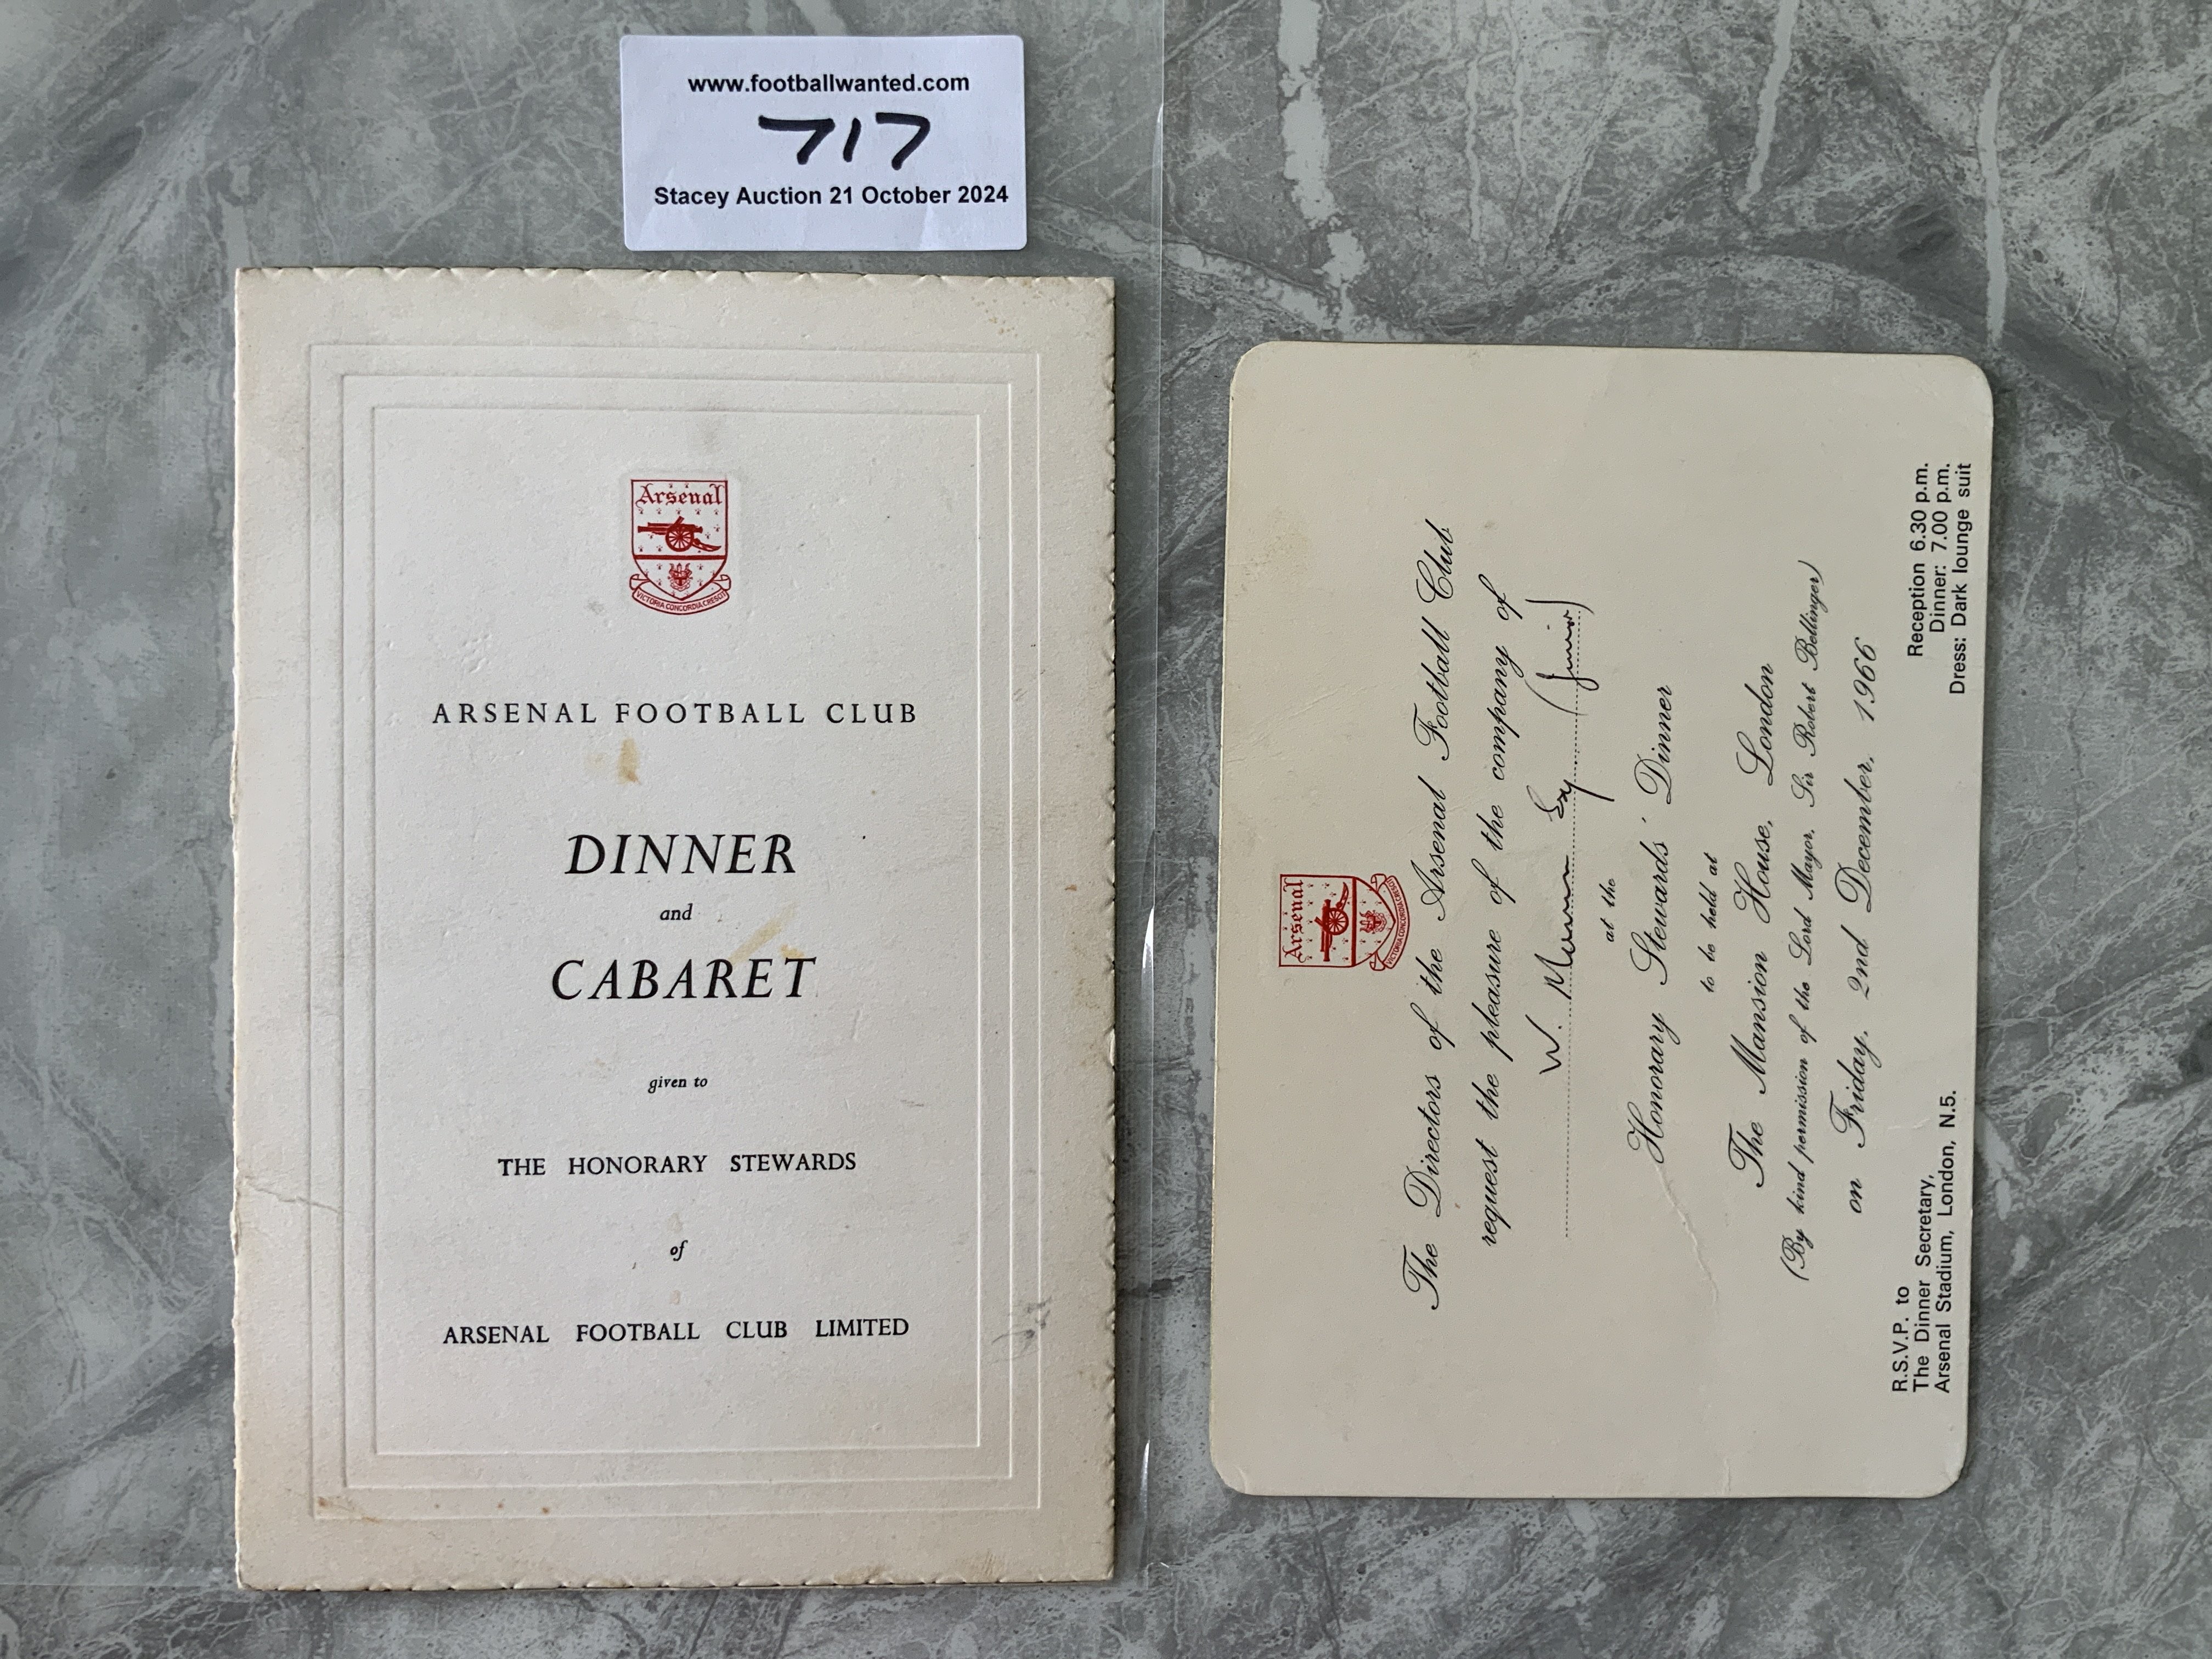 www.footballwanted.com
717
Stacey Auction 21 October 2024
Arsenal
VICTORIA CONCORDIA CRESCIT
ARSENAL FOOTBALL CLUB
DINNER
and
CABARET
given to
THE HONORARY STEWARDS
of
ARSENAL FOOTBALL CLUB LIMITED
Arsenal
VICTORIA CONCORDIA CRESCIT
The Directors of the Arsenal Football Club
request the pleasure of the company of
W. Esq (Junior)
at the
Honorary Stewards' Dinner
to be held at
The Mansion House, London
(By kind permission of the Lord Mayor, Sir Robert Bellinger)
on Friday, 2nd December, 1966
R.S.V.P. to
The Dinner Secretary,
Arsenal Stadium, London, N.5.
Reception 6.30 p.m.
Dinner: 7.00 p.m.
Dress: Dark lounge suit